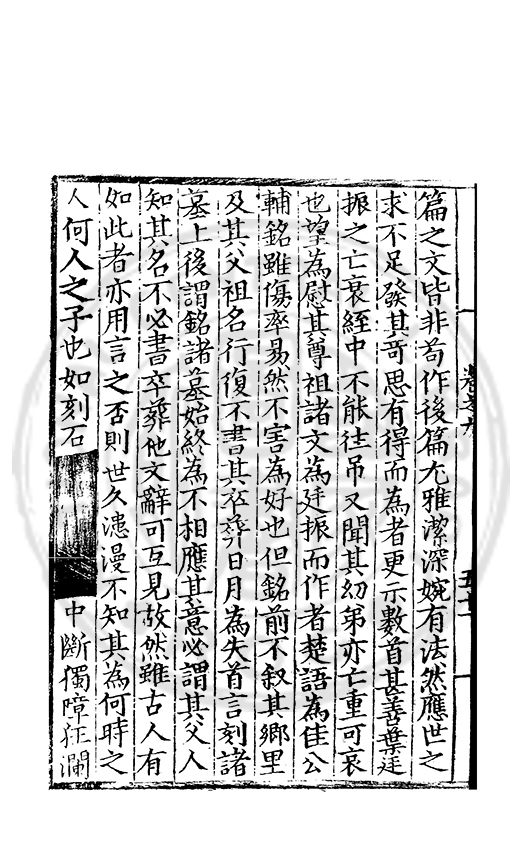 篇之文皆非苟作後篇尤雅潔深婉有法然應世之
求不足發其奇思有得而為者更示數首甚善葉廷
振之亡衰絰中不能往吊又聞其幼弟亦亡重可哀
也望為慰其尊祖諸文為廷振而作者楚語為佳公
輔銘雖傷率易然不害為好也但銘前不叙其鄉里
及其父祖名行復不書其卒葬日月為失首言刻諸
墓上後謂銘諸墓始終為不相應其意必謂其父人
知其名不必書卒葬他文辭可互見故然雖古人有
如此者亦用言之否則世久漶漫不知其為何時之
人何人之子也如刻石
中斷獨障狂瀾